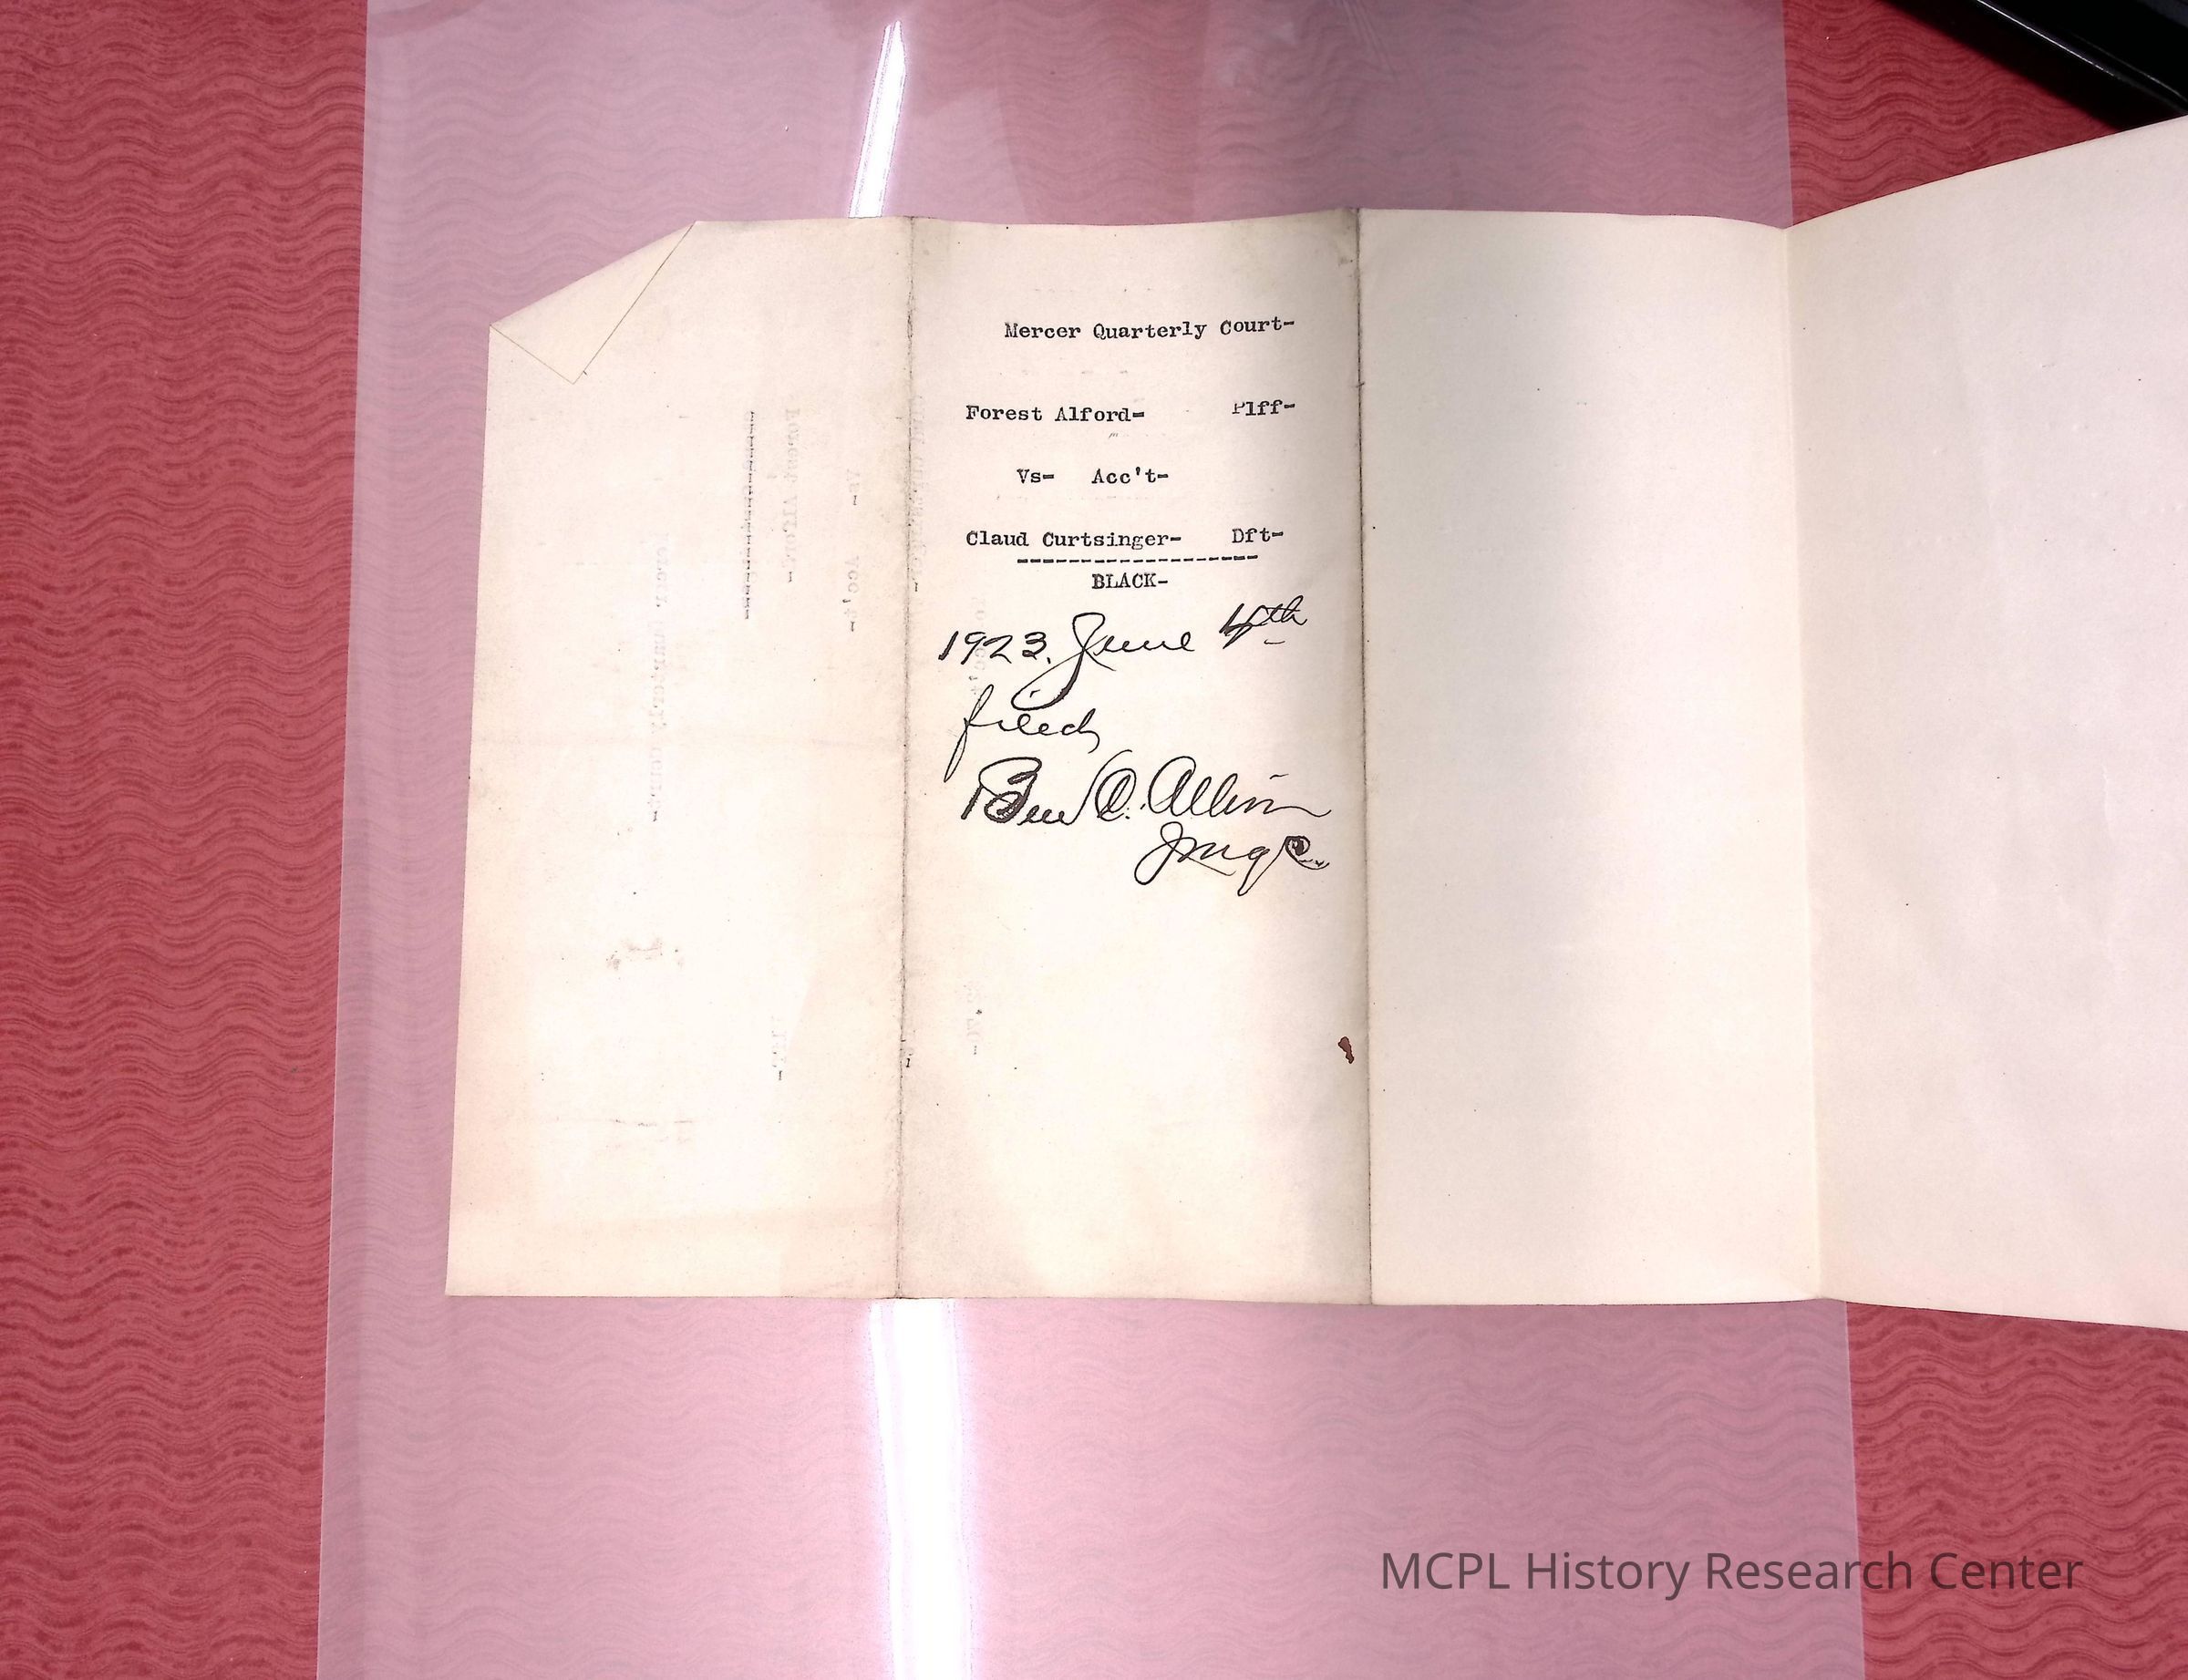 Mercer Quarterly Court-
Forest Alford- Plff-
Vs- Acc't-
Claud Curtsinger- Dft-
--------------------
BLACK-
1923. June 4th
filed
Ben C. Allin
Judge
MCPL History Research Center